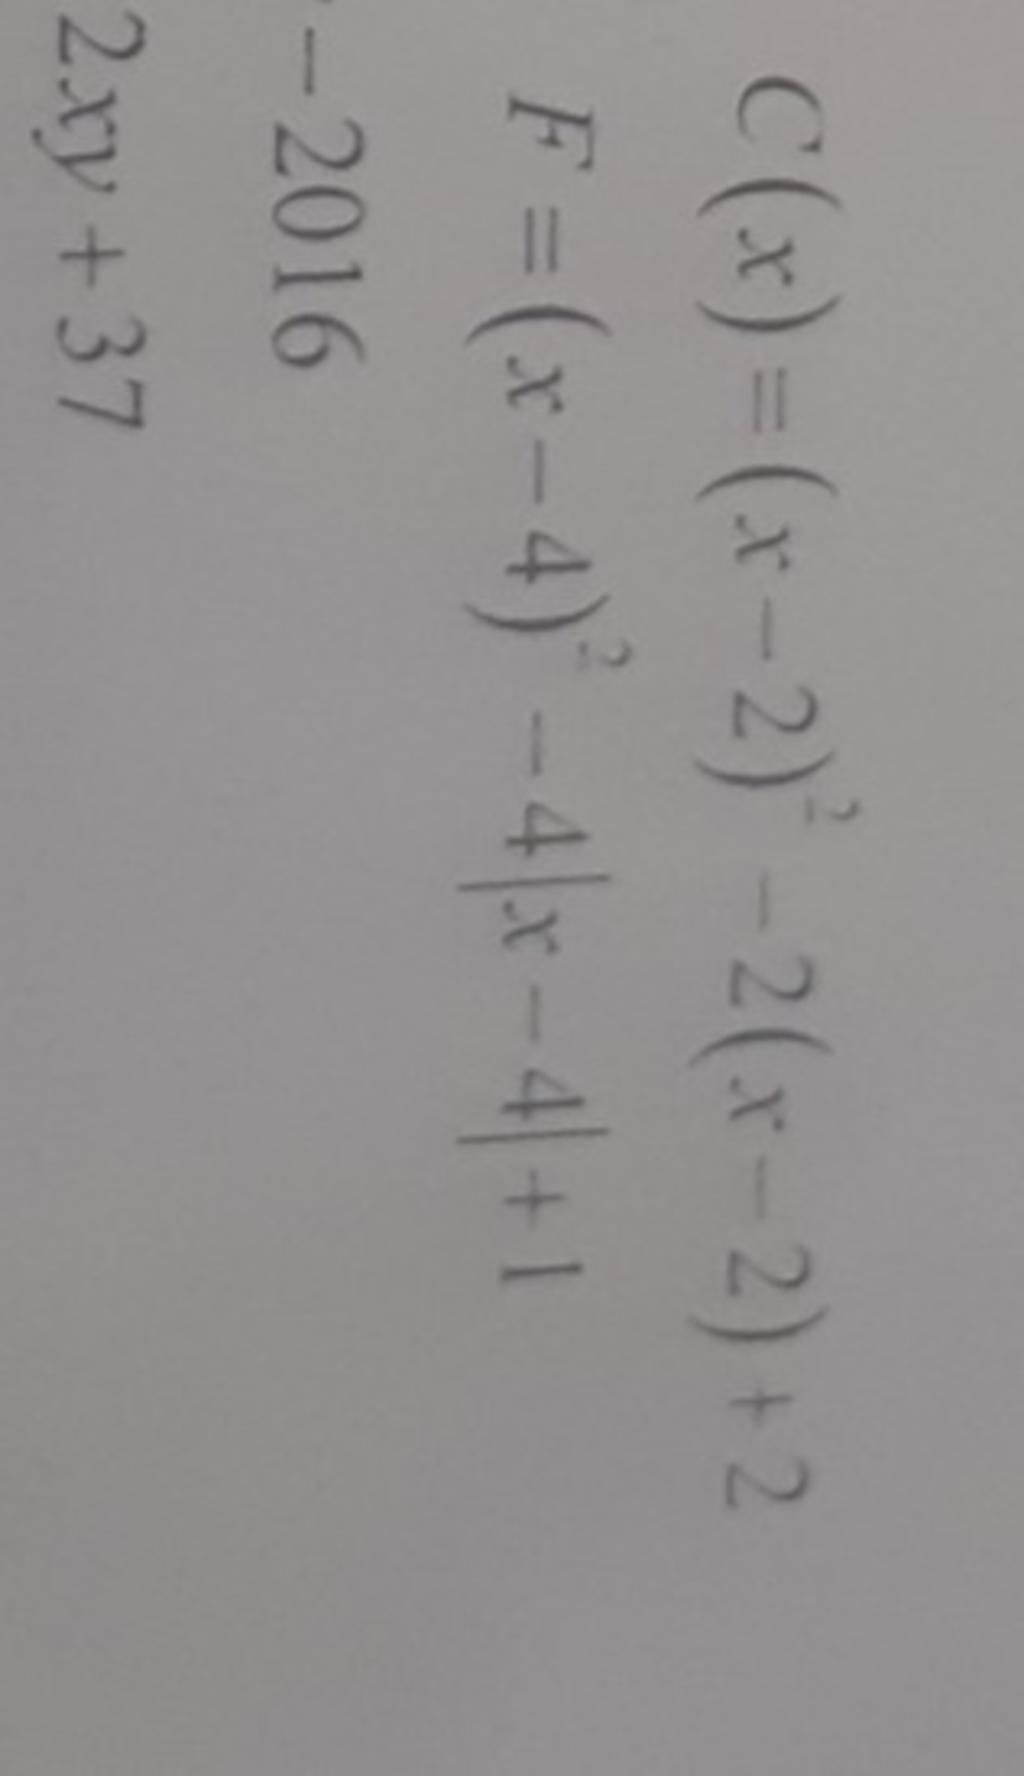 C(x) = (x - 2)² - 2(x - 2) + 2
F = (x - 4)² - 4|x - 4| + 1
- 2016
2xy + 37